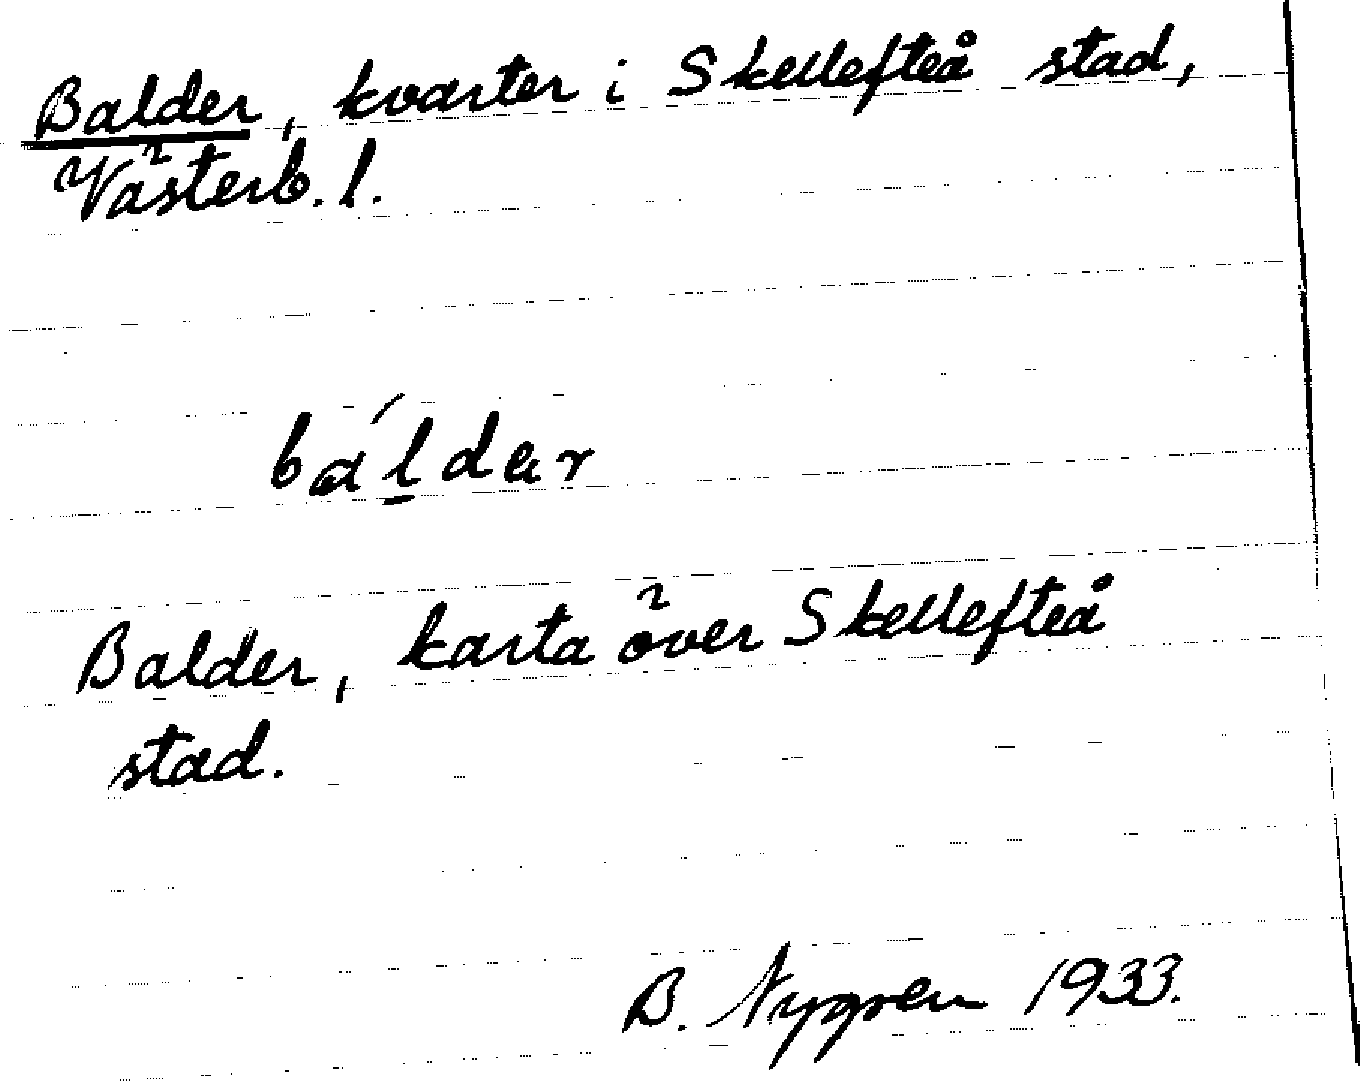 Balder, kvarter i Skellefteå stad,
Västerb. l.
báldar
Balder, karta över Skellefteå
stad.
B. Nygren 1933.